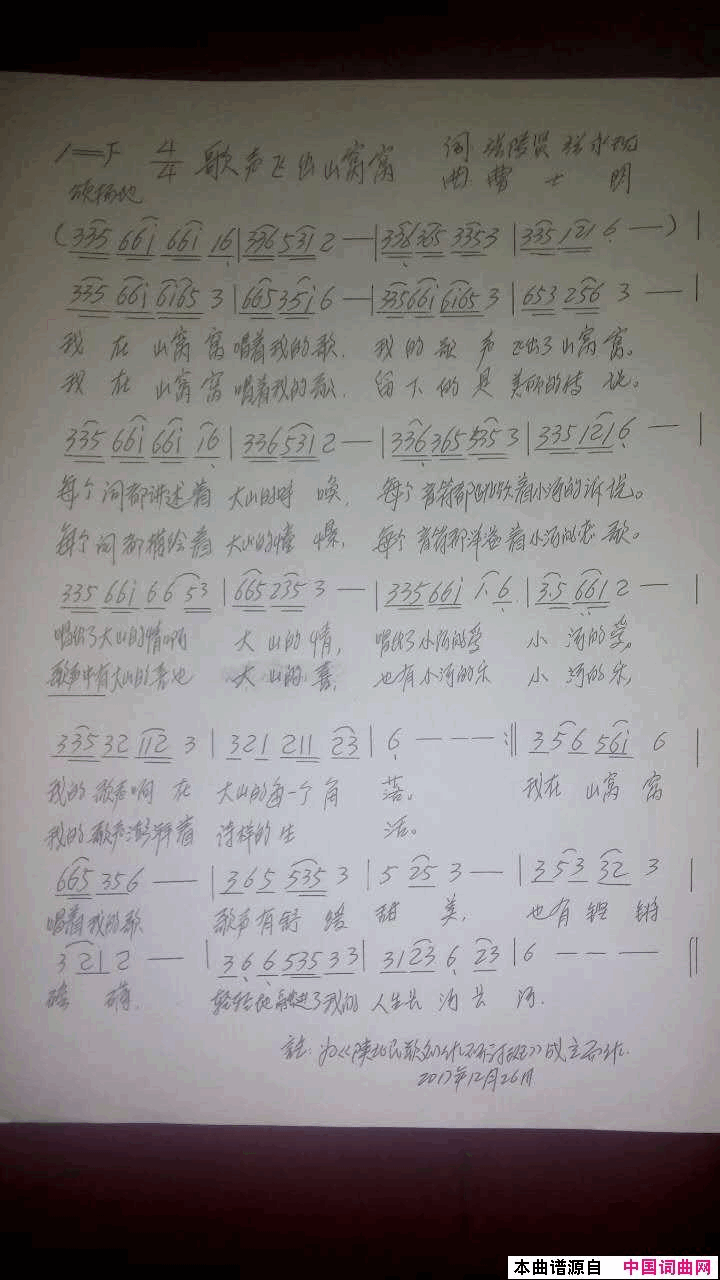 1=F 4/4 歌声飞出山窝窝 词 张 贤 张永
颂扬地 曲 曹 士 明
(335 66i 66i 16|336 531 2 —|336365 3353|335 121 6 — —)|
335 66i 6i65 3|665 35i 6 —|33566i 6i65 3|653 256 3 —|
我 在 山窝窝唱着我的歌. 我的歌 声 飞出了山窝窝。
我 在 山窝窝唱着我的歌. 留下的是 美丽的传说。
335 66i 66i i6|336 531 2 —|336 365 535 3|335 121 6 —|
每个词都讲述着 大山的呼 唤. 每个音符都 着小河的诉说。
每个词都描绘着 大山的情 愫. 每个音符都洋溢着小河的恋歌。
335 66i 6 6 53|665 235 3 —|335 66i i. 6|3.5 661 2 —|
唱出了大山的情 大山的情, 唱出了小河的爱 小河的爱。
歌声中有大山的喜也 大山的喜, 也有小河的乐 小河的乐,
335 32 112 3|321 211 23|6 — — — :‖ 356 56i 6|
我的歌声响在 大山的每一个角 落。 我在 山窝窝
我的歌声 着 诗样的生 活。
665 356 —|365 535 3|5 25 3 —|353 32 3|
唱着我的歌 歌声有舒缓 甜 美, 也有铿锵
3 21 2 —|36 6 535 33|31 23 6 23|6 — — — —‖
轻轻地融进了我的 人生长河长河.
注. 为《陕北民歌创作研讨班》成立而作.
2017年12月26日
本曲谱源自 中国词曲网